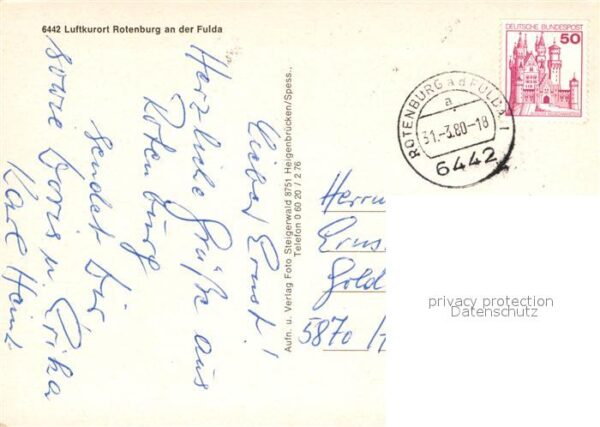 6442 Luftkurort Rotenburg an der Fulda
Lieber Ernst!
Herzliche Grüße aus
Rotenburg
sendet Dir
Karl Heinz
sowie Doris u. Erika
Aufn. u. Verlag Foto Steigerwald 8751 Heigenbrücken/Spess..
Telefon 0 60 20 / 2 76
DEUTSCHE BUNDESPOST
50
ROTENBURG a d FULDA 1
a
31.-3.80-18
6442
Herrn
Erns
Gold
5870 /
privacy protection
Datenschutz